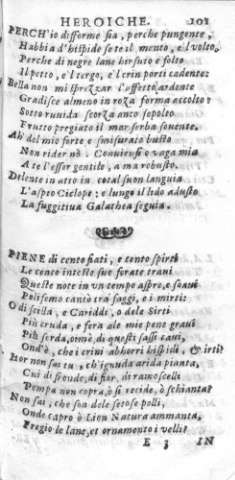 HEROICHE. 101
PERCH'io difforme sia, perche pungente,
Habbia d'hispide sete il mento, e'l volto,
Perche di negre lane hirsuto e folto
Il petto, e'l tergo, e'l crin porti cadente:
Bella non mi sprezzar l'affetto ardente
Gradisce almeno in roza forma accolto:
Sotto ruuida scorza anco sepolto
Frutto pregiato il mar serba souente.
Ah del mio forte e smisurato busto
Non rider nò. Conuiensi o vaga mia
A te l'esser gentile, a me robusto.
Dolente in atto in cotal suon languia
L'aspro Ciclope; e lungo il lido adusto
La fuggitiua Galathea seguia.
PIENE di cento fiati, e cento spirti
Le cento inceste sue forate traui
Queste note in vn tempo aspre, e soaui
Polifemo cantò tra faggi, e i mirti:
O di scilla, e Cariddi, o dele Sirti
Più cruda, e fera ale mie pene graui
Più sorda, oimè, di questi sassi caui,
Ond'è, che i crini abhorri hispidi, & irti?
Hor non sai tu, ch'ignuda arida pianta,
Cui di fronde, di fior, di ramoscelli
Pompa non copra, ò si recide, ò schianta?
Non sai, che son dele setose polli,
Onde capro ò Lion Natura ammanta,
Pregio le lane, et ornamento i velli?
E 3 IN